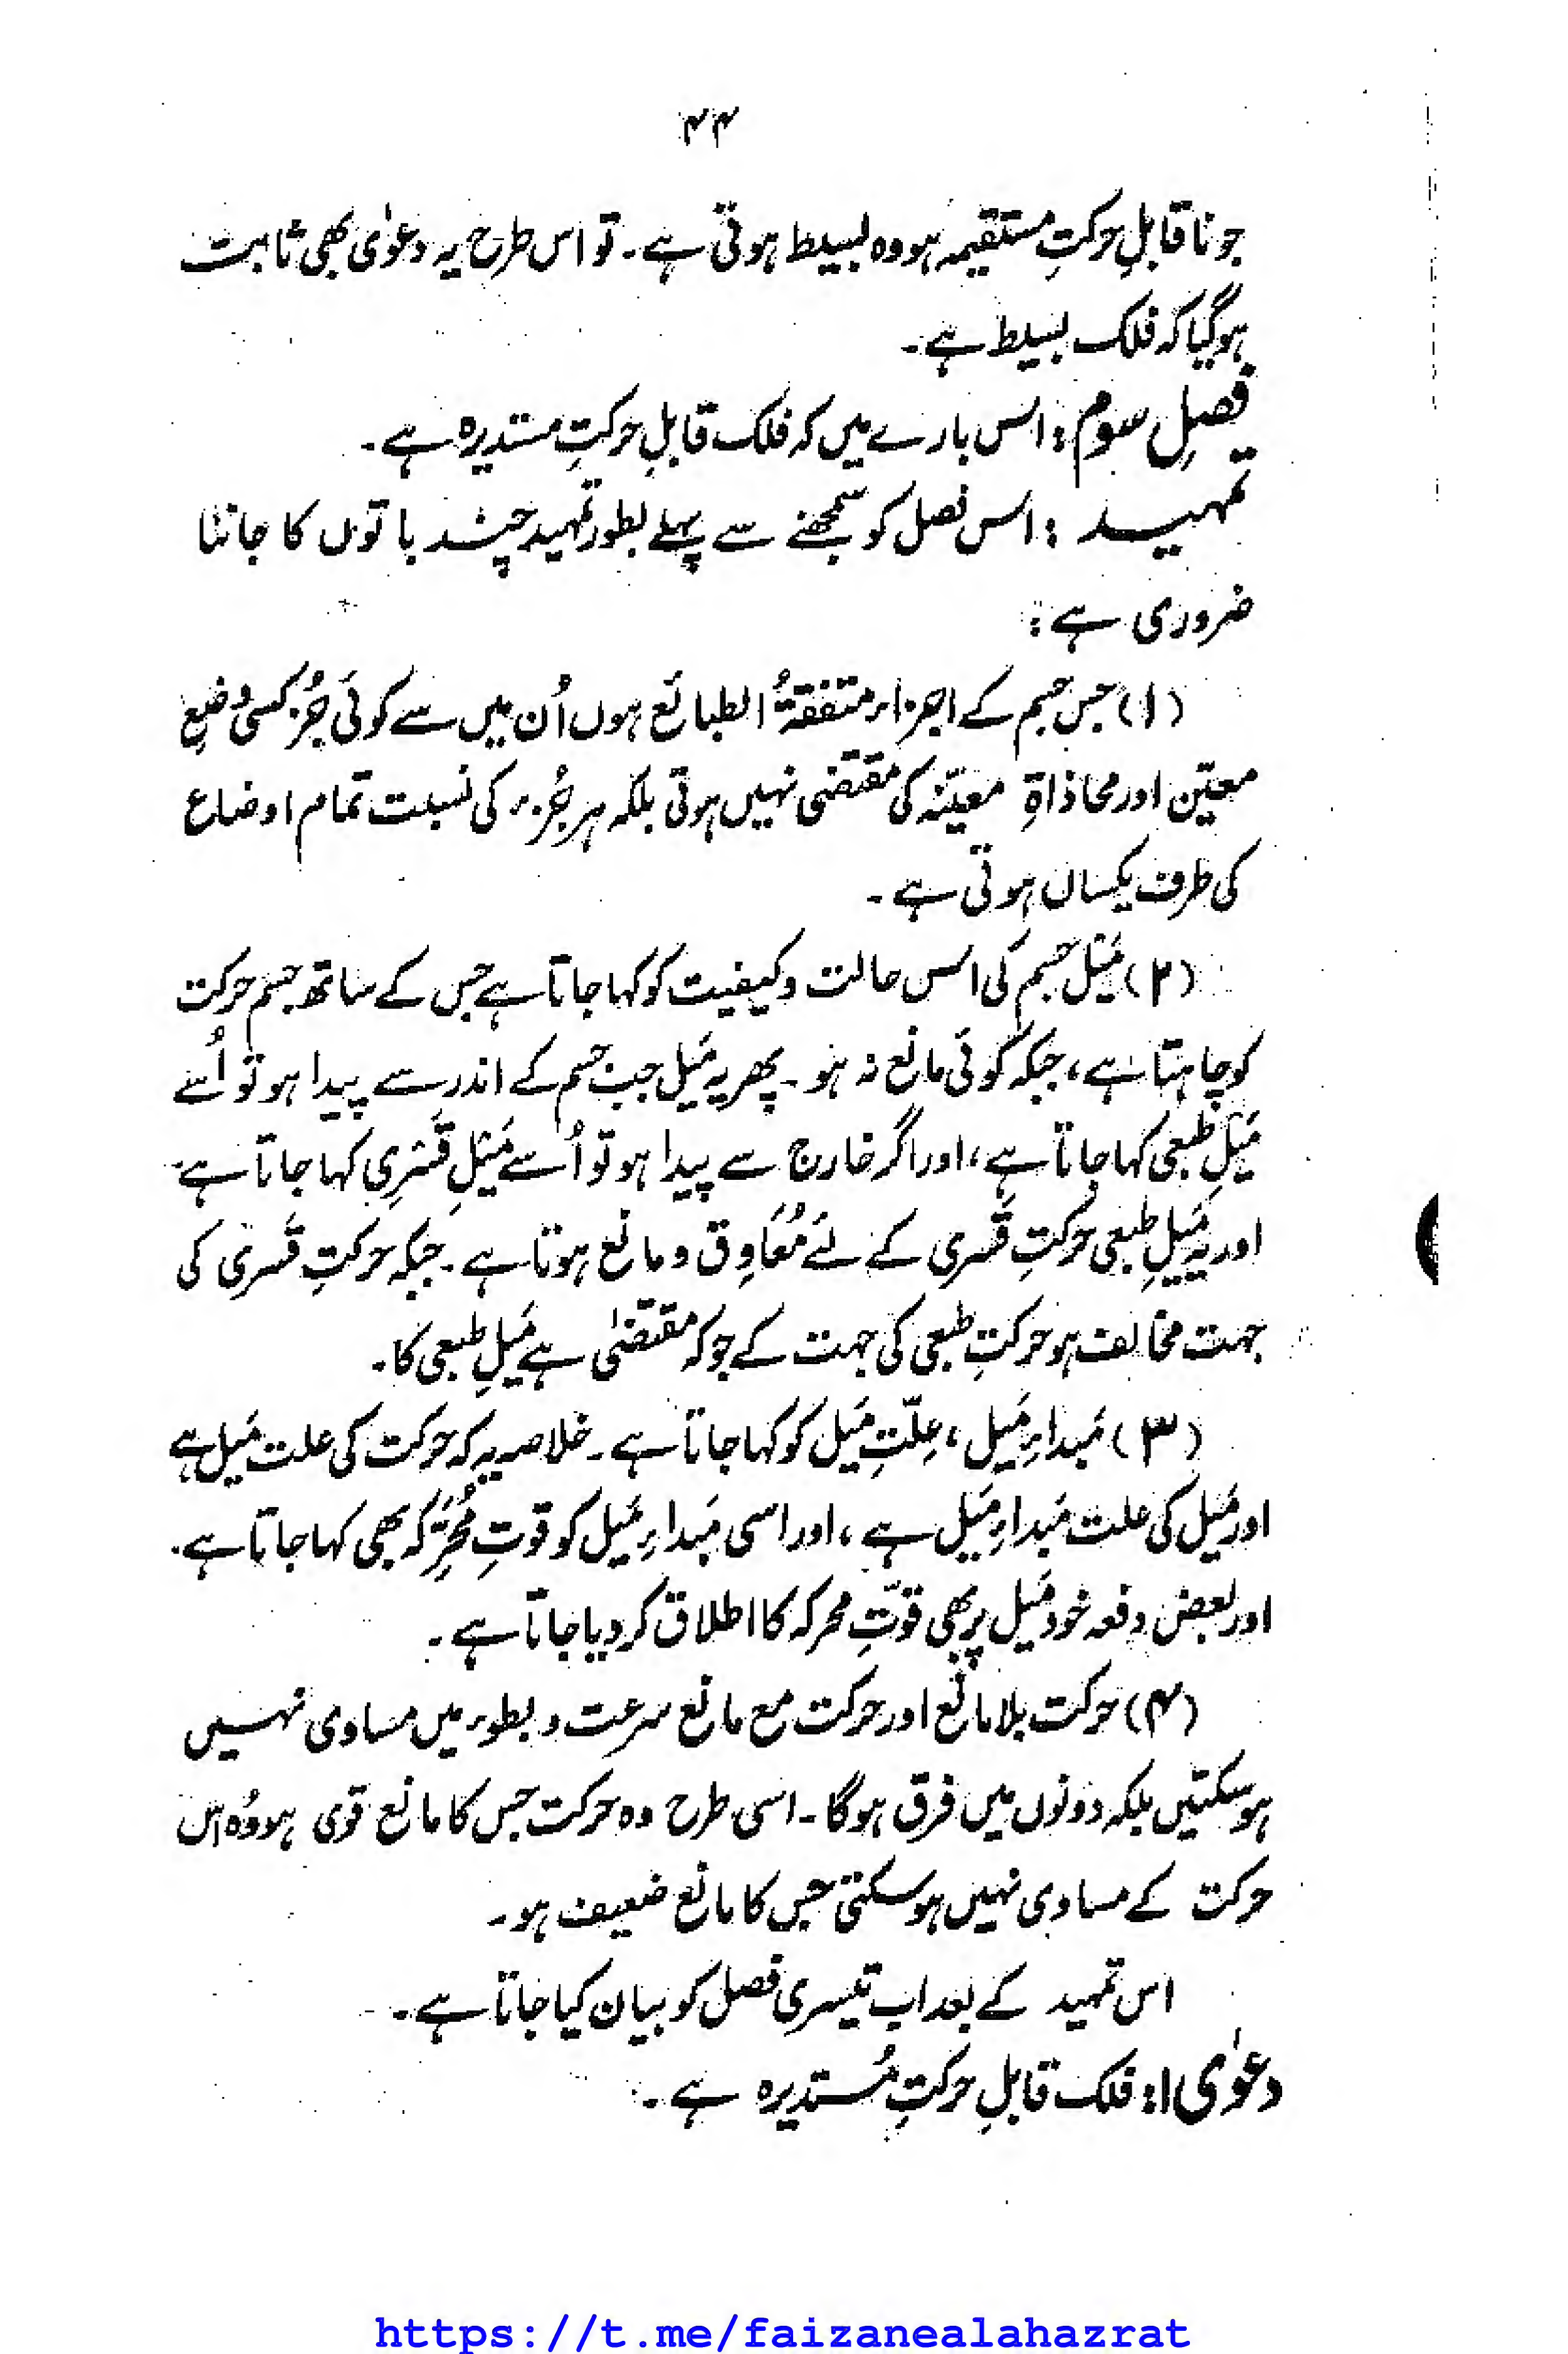 ۴۴
جو ناقابلِ حرکتِ مستقیمہ ہو وہ بسیط ہوتی ہے۔ تو اس طرح یہ دعوٰی بھی ثابت
ہوگیا کہ فلک بسیط ہے۔
فصلِ سوم : اس بارے میں کہ فلک قابلِ حرکتِ مستدیرہ ہے۔
تمہید : اس فصل کو سمجھنے سے پہلے بطورِ تمہید چند باتوں کا جاننا
ضروری ہے :
(۱) جس جسم کے اجزاء متفقۃُ الطبائع ہوں اُن میں سے کوئی جُزء کسی وضعِ
معیّن اور محاذاۃِ معیّنہ کی مقتضی نہیں ہوتی بلکہ ہر جُزء کی نسبت تمام اوضاع
کی طرف یکساں ہوتی ہے۔
(۲) مَیل جسم کی اس حالت و کیفیت کو کہا جاتا ہے جس کے ساتھ جسم حرکت
کو چاہتا ہے، جبکہ کوئی مانع نہ ہو۔ پھر یہ مَیل جب جسم کے اندر سے پیدا ہو تو اُسے
مَیلِ طبعی کہا جاتا ہے، اور اگر خارج سے پیدا ہو تو اُسے مَیلِ قَسْرِی کہا جاتا ہے
اور یہ مَیلِ طبعی حرکتِ قَسری کے لئے مُعَاوِق و مانع ہوتا ہے۔ جبکہ حرکتِ قَسری کی
جہت مخالف ہو حرکتِ طبعی کی جہت کے جو کہ مقتضیٰ ہے مَیلِ طبعی کا۔
(۳) مَبداءِ مَیل، عِلّتِ مَیل کو کہا جاتا ہے۔ خلاصہ یہ کہ حرکت کی علت مَیل ہے
اور مَیل کی علت مَبداءِ مَیل ہے، اور اسی مَبداءِ مَیل کو قوتِ مُحَرِّکہ بھی کہا جاتا ہے۔
اور بعض دفعہ خود مَیل پر بھی قوّتِ محرکہ کا اطلاق کر دیا جاتا ہے۔
(۴) حرکت بلا مانع اور حرکت مع مانع سرعت و بطوء میں مساوی نہیں
ہوسکتیں بلکہ دونوں میں فرق ہوگا۔ اسی طرح وہ حرکت جس کا مانع قوی ہو وُہ اس
حرکت کے مساوی نہیں ہوسکتی جس کا مانع ضعیف ہو۔
اس تمہید کے بعد اب تیسری فصل کو بیان کیا جاتا ہے۔
دعوٰی ۱: فلک قابلِ حرکتِ مُستدیرہ ہے۔
https://t.me/faizanealahazrat